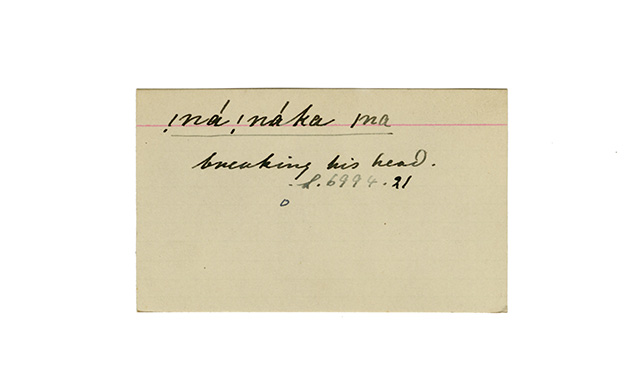 !ná!náka |na
breaking his head.
L.6994.21